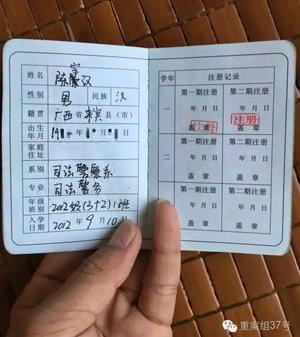 姓名
性别 男 民族 汉
籍贯 广西省来宾县(市)
出生年月 年 月 日
家庭住址
系别 司法警察系
专业 司法警务
年级班别 2012级(3+2)1班
入学日期 2012年9月10日
学年 注册记录
一 第一期注册 第二期注册
年 月 日 年 月 日
注册 注册
盖 章 盖 章
二 第一期注册 第二期注册
年 月 日 年 月 日
盖 章 盖 章
第一期注册 第二期注册
年 月 日 年 月 日
盖 章 盖 章
重案组37号